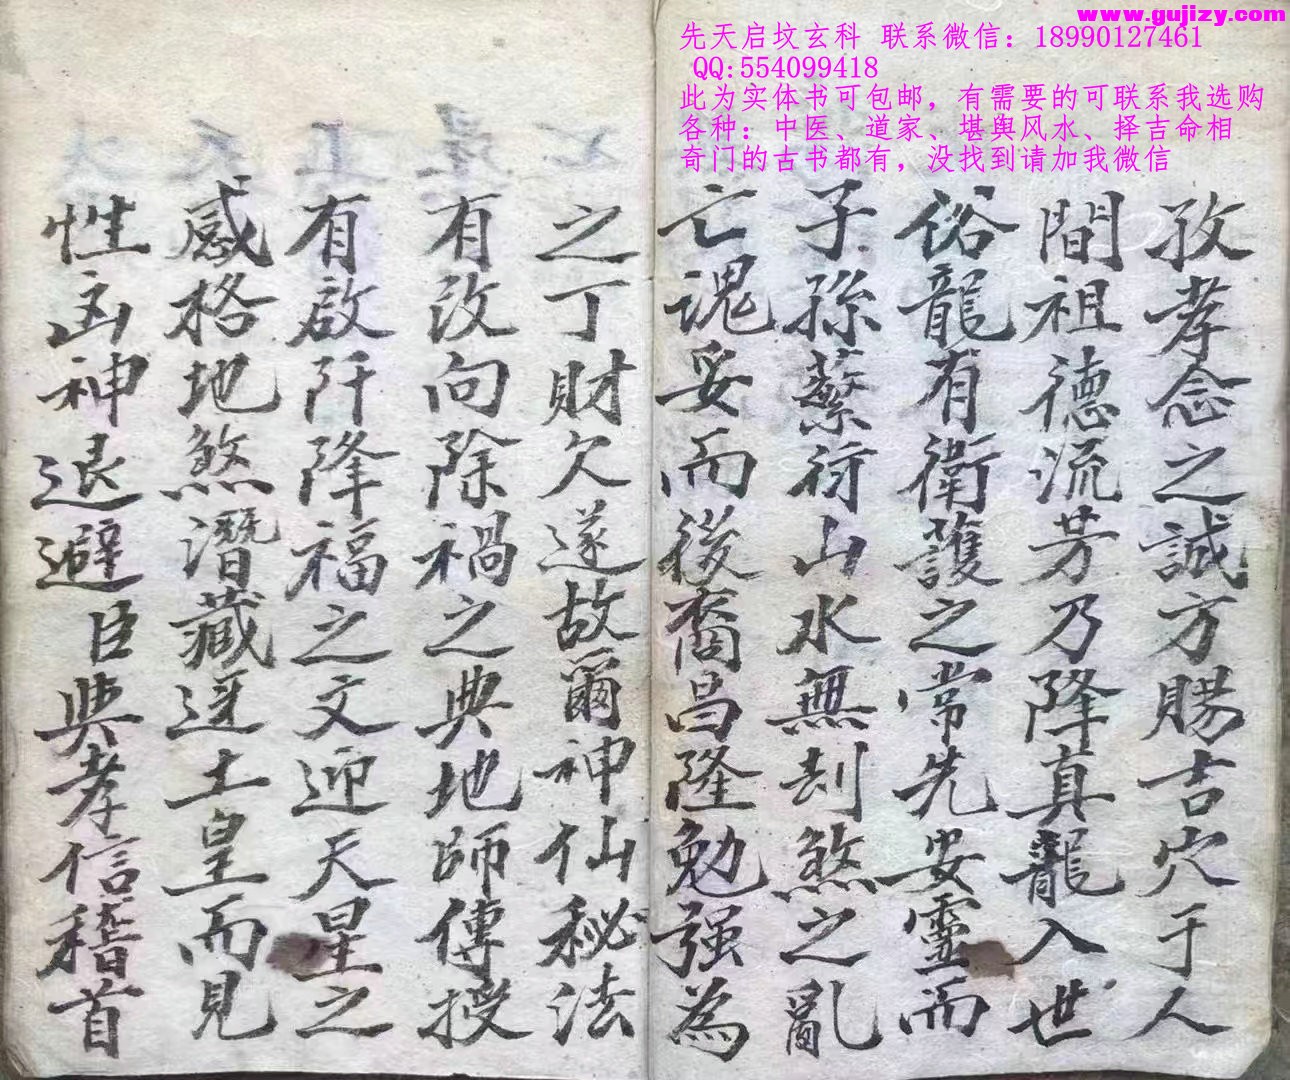 www.gujizy.com
先天启坟玄科 联系微信：18990127461
QQ:554099418
此为实体书可包邮，有需要的可联系我选购
各种：中医、道家、堪舆风水、择吉命相
奇门的古书都有，没找到请加我微信
孜孝念之誠方賜吉穴于人
間祖德流芳乃降真龍入世
俗龍有衛護之常先安靈而
子孫蘩衍山水無刦煞之亂
亡魂妥而後裔昌隆勉强為
之丁財欠遂故爾神仙秘法
有改向除禍之典地師傳授
有啟阡降福之文迎天星之
感格地煞潛藏迓土皇而見
性凶神退避臣典孝信稽首